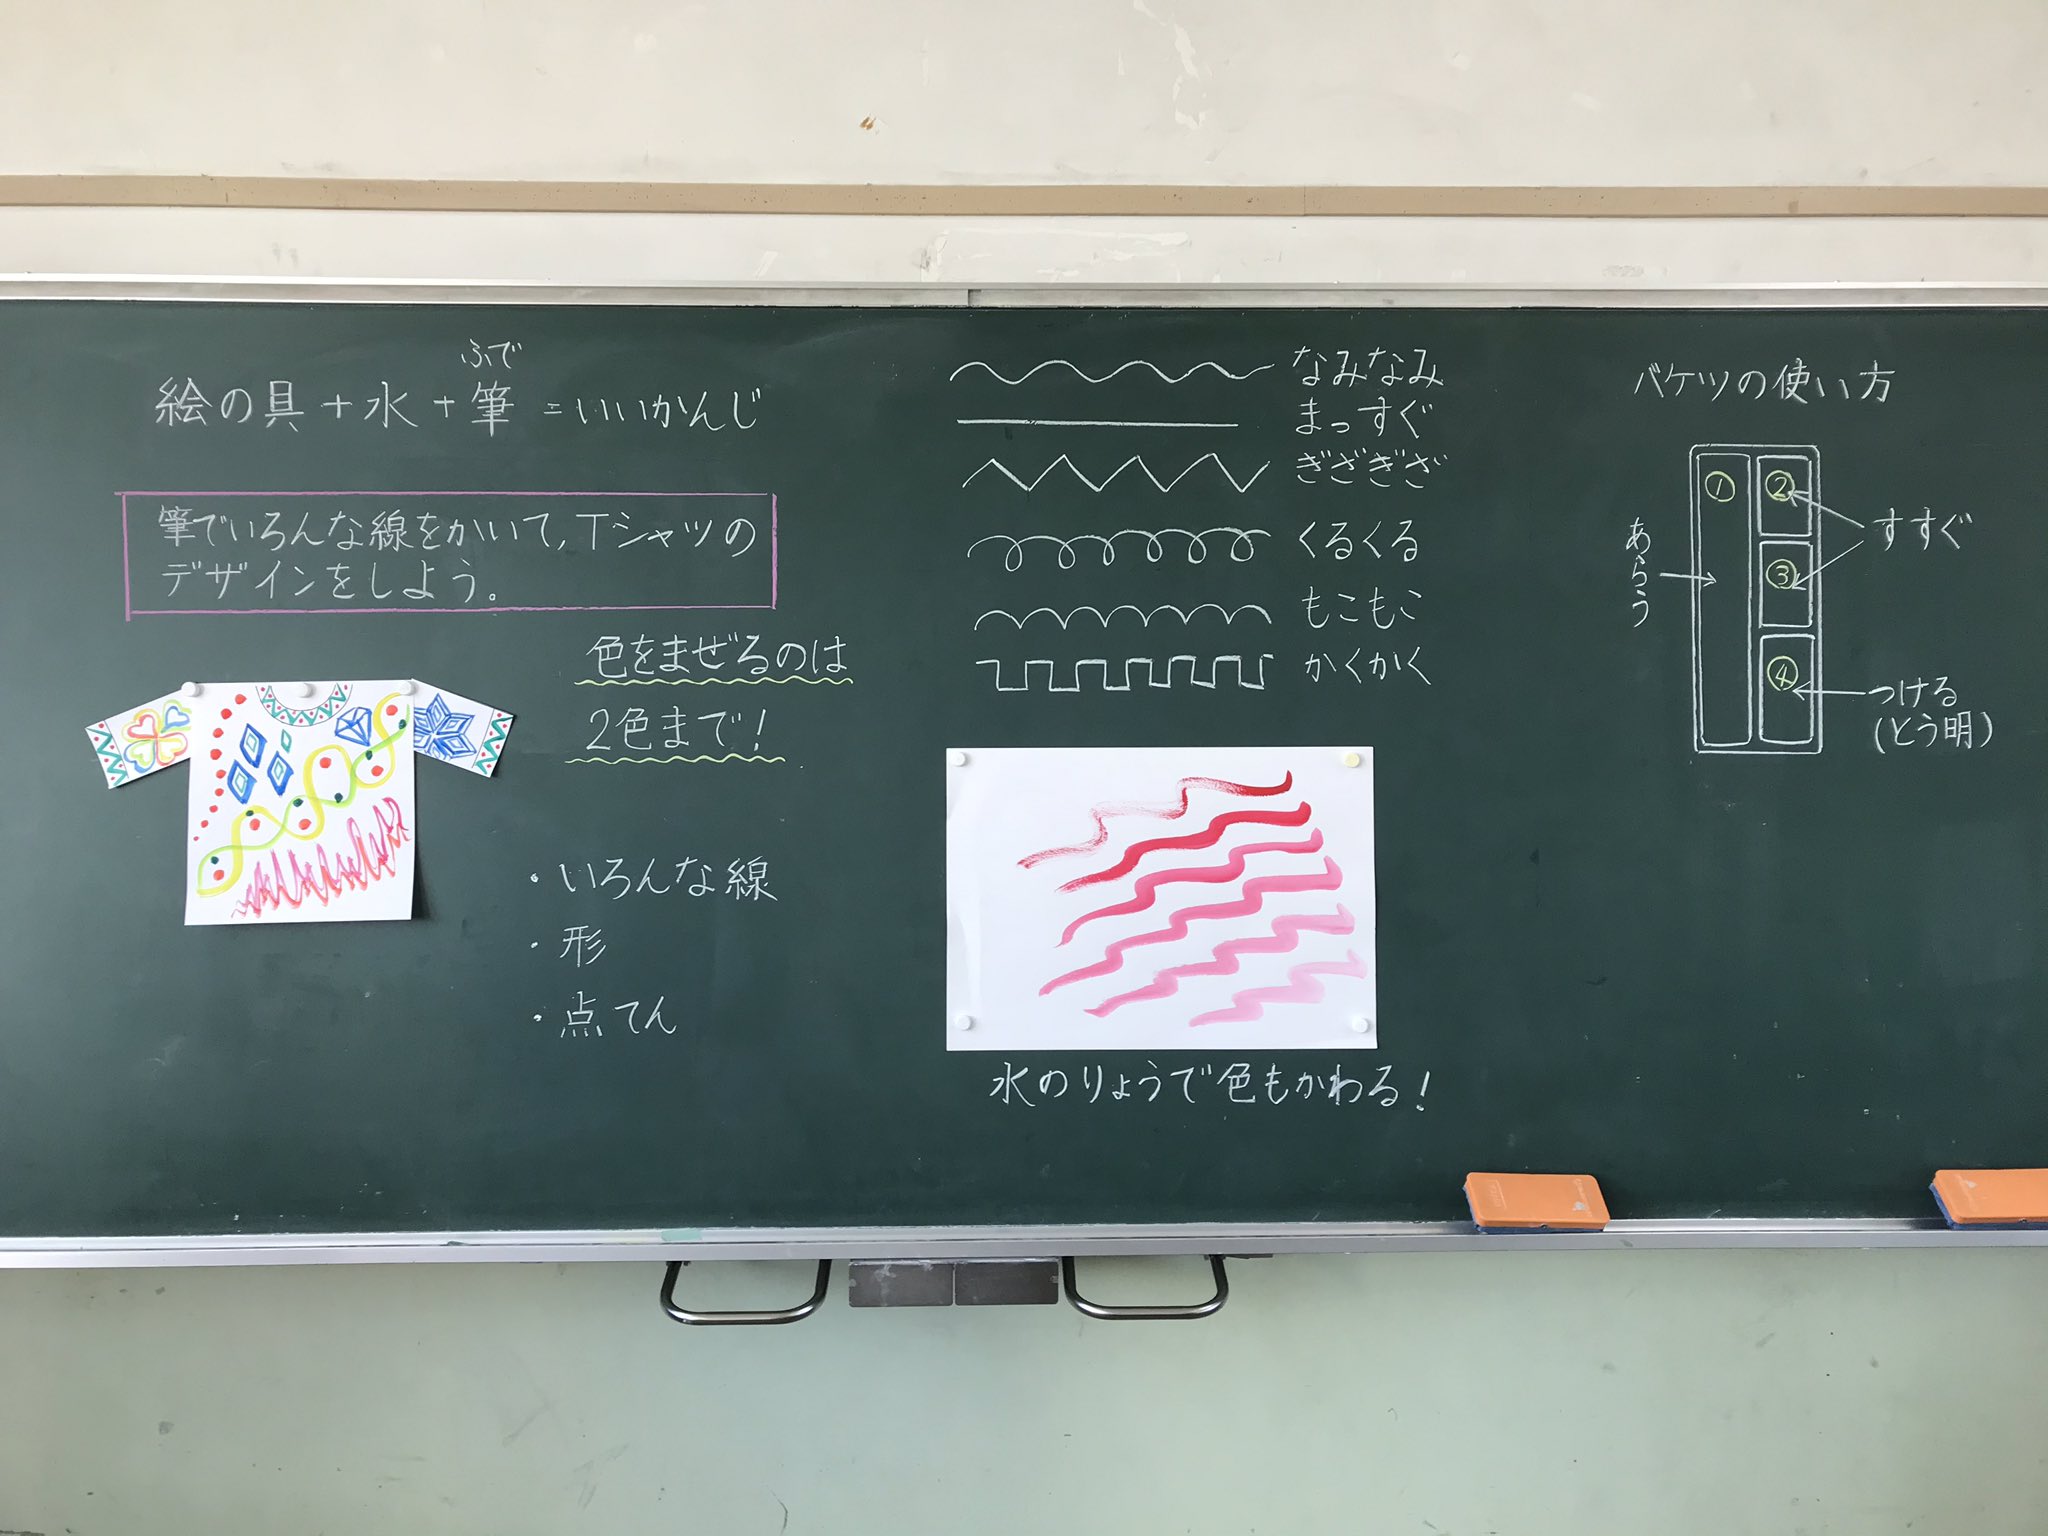 ふで
絵の具+水+筆=いいかんじ
筆でいろんな線をかいて,Tシャツの
デザインをしよう。
色をまぜるのは
2色まで!
・いろんな線
・形
・点てん
なみなみ
まっすぐ
ぎざぎざ
くるくる
もこもこ
かくかく
水のりょうで色もかわる!
バケツの使い方
①
②
③
④
あらう
すすぐ
つける
(とう明)